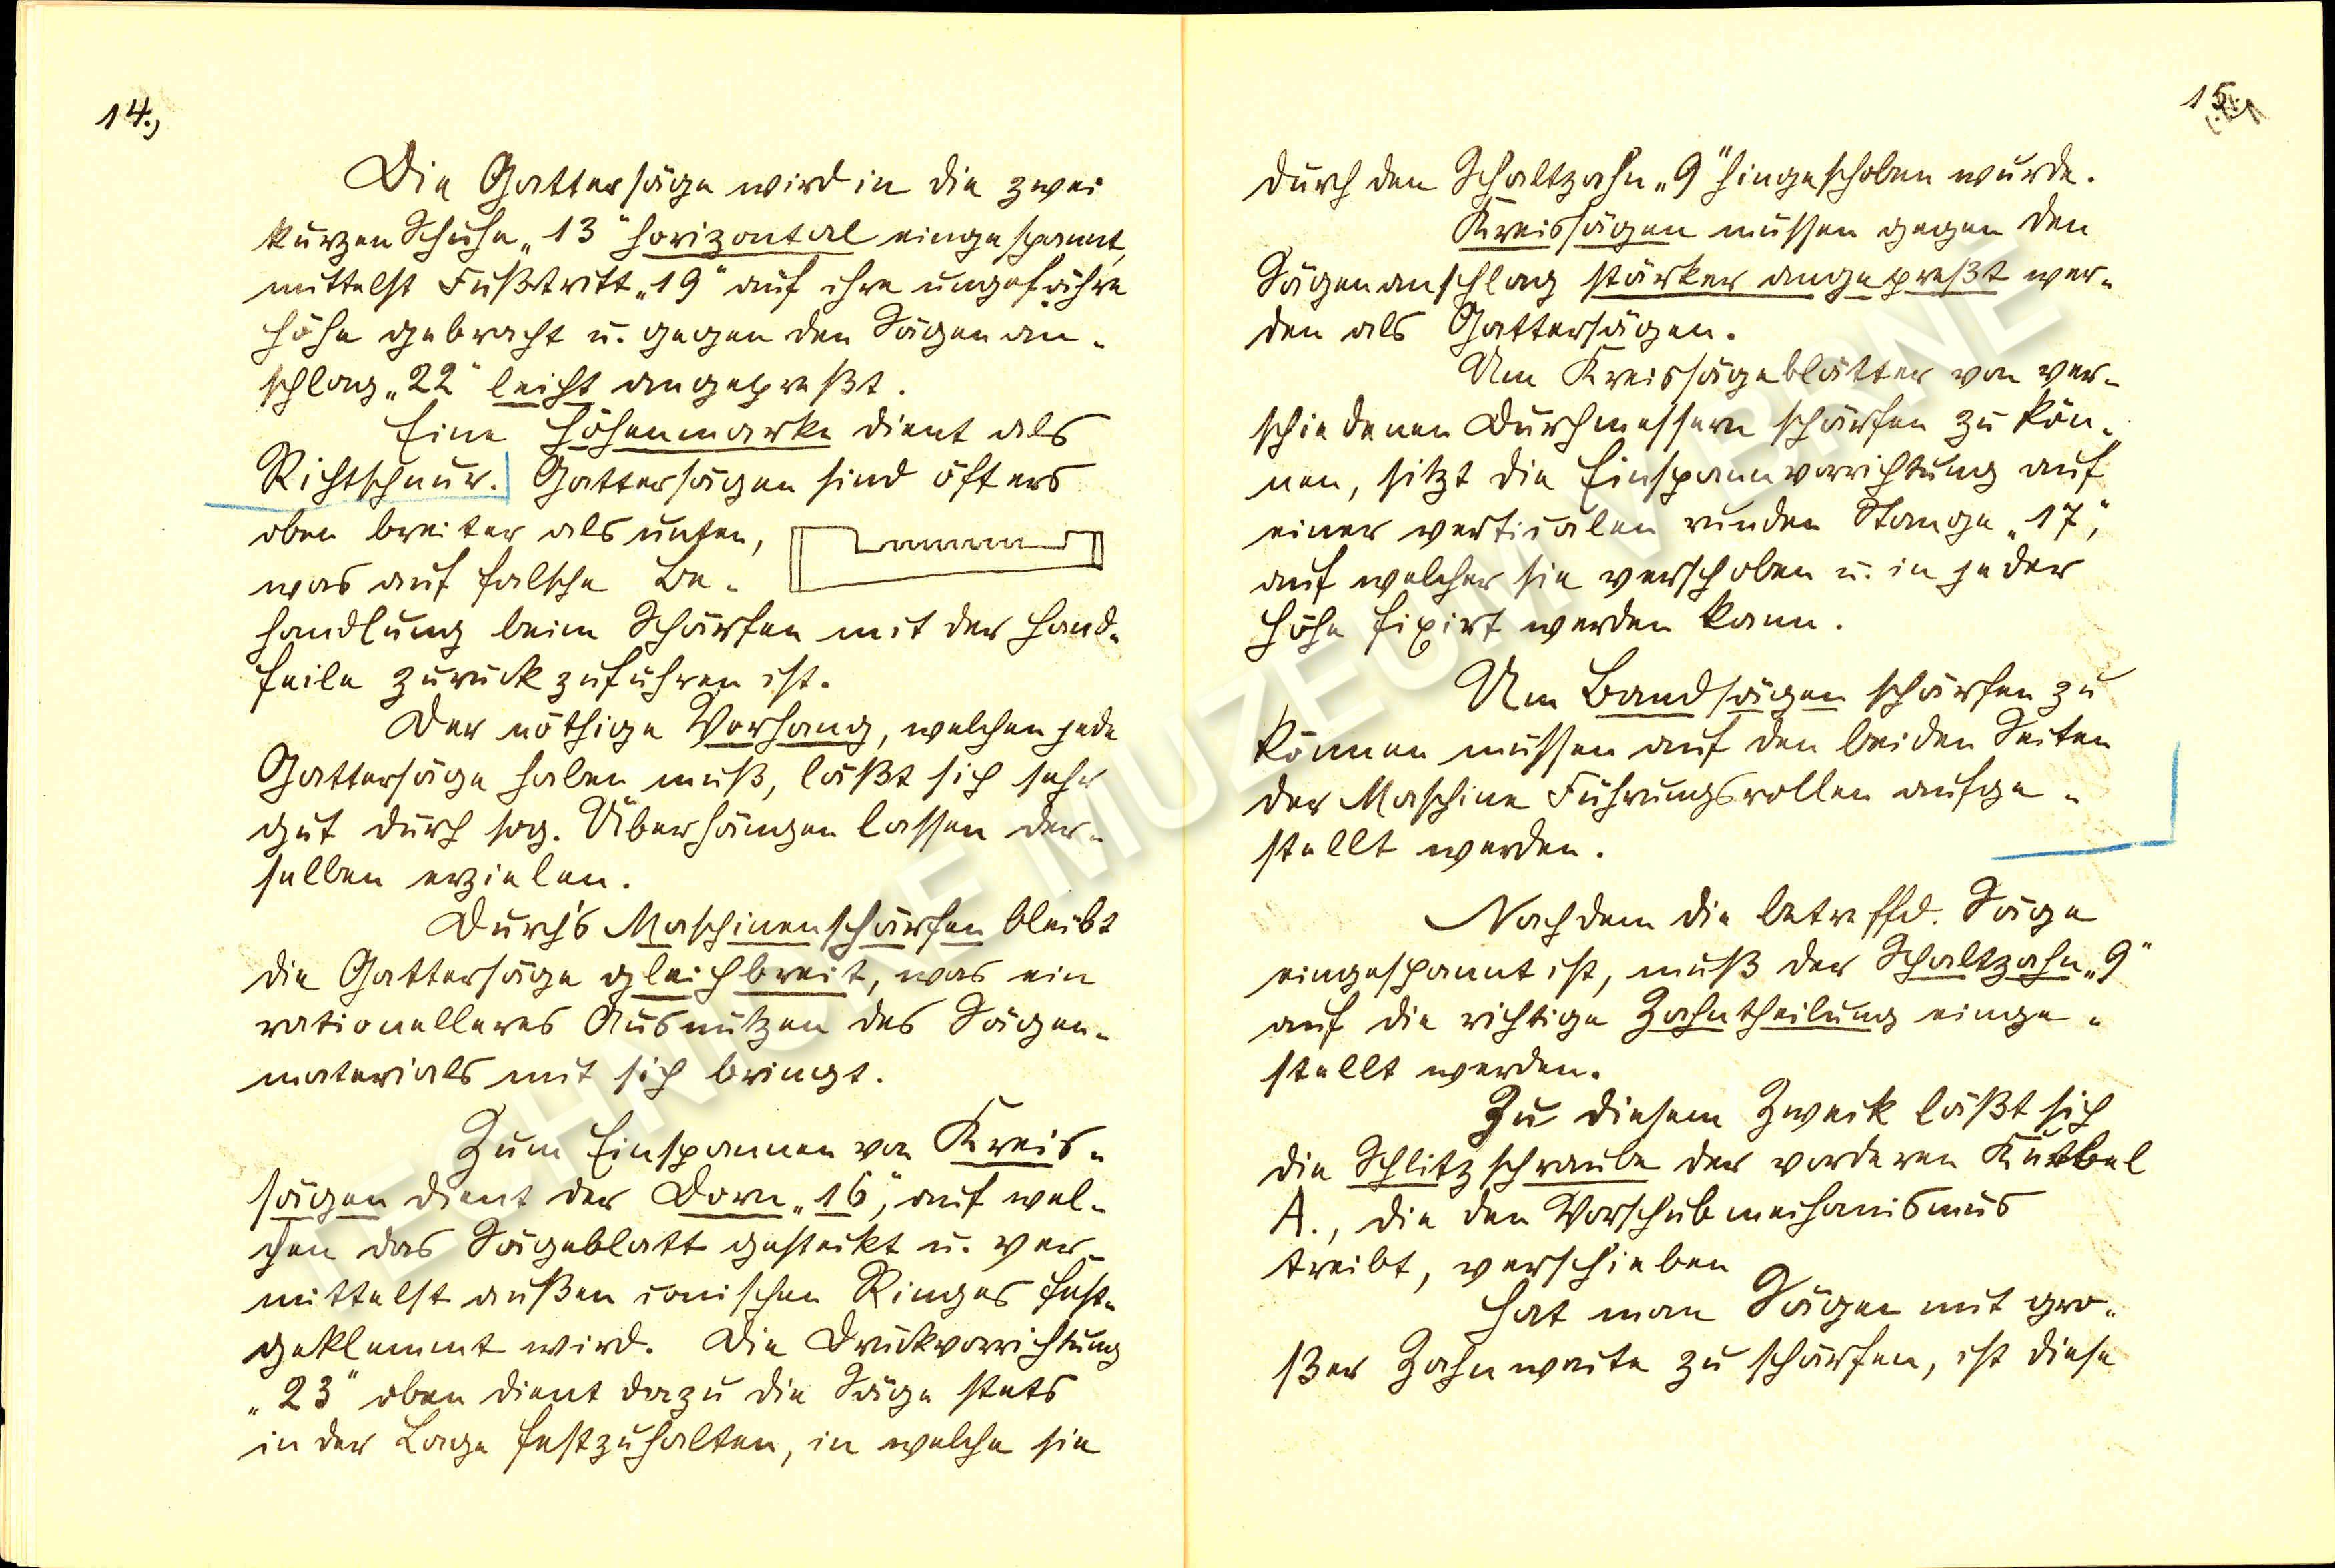 14.,
Die Gattersäge wird in die zwei
kurzen Schuhe „13“ horizontal eingespannt,
mittelst Fußtritt „19“ auf ihre ungefähre
Höhe gebracht u. gegen den Sägenan-
schlag „22“ leicht angepreßt.
Eine Höhenmarke dient als
Richtschnur. Gattersägen sind öfters
oben breiter als unten,
was auf falsche Be-
handlung beim Schärfen mit der Hand-
feile zurückzuführen ist.
Der nöthige Vorhang, welchen jede
Gattersäge haben muß, läßt sich sehr
gut durch sog. Überhängen lassen der-
selben erzielen.
Durch's Maschinenschärfen bleibt
die Gattersäge gleichbreit, was ein
rationelleres Ausnützen des Sägen-
materials mit sich bringt.
Zum Einspannen von Kreis-
sägen dient der Dorn „16“, auf wel-
chen das Sägeblatt gesteckt u. ver-
mittelst außen conischen Ringes fest-
geklemmt wird. Die Druckvorrichtung
„23“ oben dient dazu die Säge stets
in der Lage festzuhalten, in welche sie
15.,
durch den Schaltzahn „9“ hingeschoben wurde.
Kreissägen müssen gegen den
Sägenanschlag stärker angepreßt wer-
den als Gattersägen.
Um Kreissägeblätter von ver-
schiedenen Durchmessern schärfen zu kön-
nen, sitzt die Einspannvorrichtung auf
einer verticalen runden Stange „17“,
auf welcher sie verschoben u. in jeder
Höhe fixirt werden kann.
Um Bandsägen schärfen zu
können müssen auf den beiden Seiten
der Maschine Führungsrollen aufge-
stellt werden.
Nachdem die betreffd. Säge
eingespannt ist, muß der Schaltzahn „9“
auf die richtige Zahntheilung einge-
stellt werden.
Zu diesem Zweck läßt sich
die Schlitzschraube der vorderen Kurbel
A., die den Vorschubmechanismus
treibt, verschieben
Hat man Sägen mit gro-
ßer Zahnweite zu schärfen, ist diese
TECHNICKÉ MUZEUM V BRNĚ